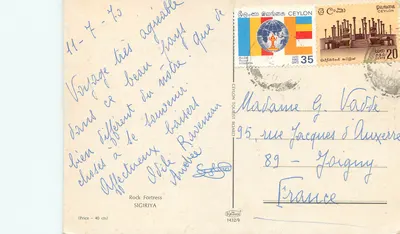 11-7-70
Voyage très agréable
dans ce beau pays
bien différent du nôtre. que de
choses à se souvenir
Affectueux baisers
Odile
Andrée
Rock Fortress
SIGIRIYA
(Price - 80 cts)
CEYLON
35
20
Madame G.
95, rue Jacques d'Auxerre
89 - Joigny
France